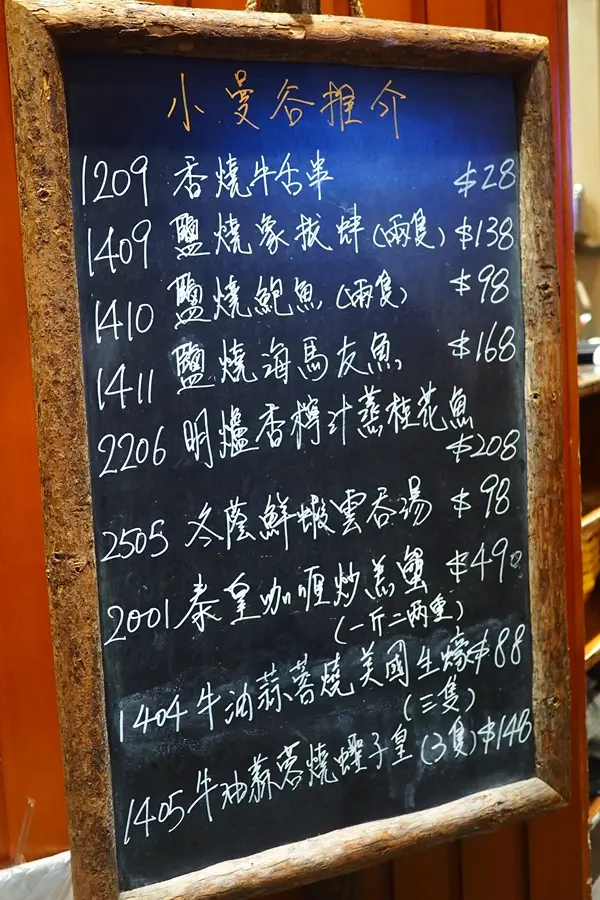 小曼谷推介
1209 香燒牛舌串 $28
1409 鹽燒象拔蚌(兩隻) $138
1410 鹽燒鮑魚(兩隻) $98
1411 鹽燒海馬友魚 $168
2206 明爐香檸汁蒸桂花魚
$208
2505 冬蔭鮮蝦雲吞湯 $98
2001 泰皇咖喱炒羔蟹 $490
(一斤二両重)
1404 牛油蒜蓉燒美國生蠔 $88
(三隻)
1405 牛油蒜蓉燒蟶子皇 (3隻) $148